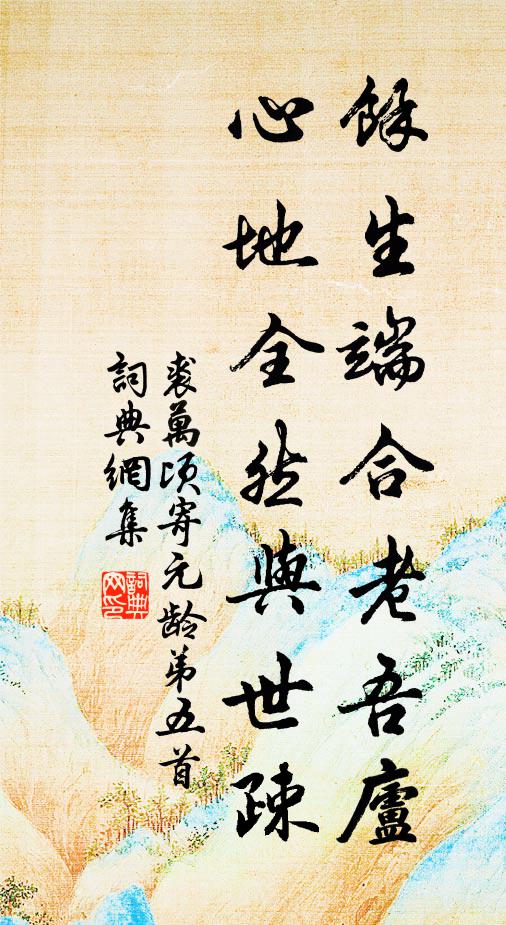 餘生端合老吾廬
心地全然與世疎
裘萬頃寄元龄第五首
詞典網集
詞典網印